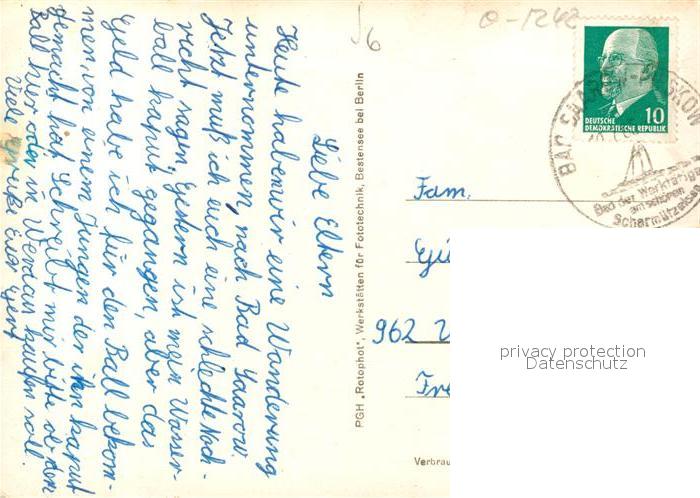 Liebe Eltern
Heute haben wir eine Wanderung
unternommen, nach Bad Saarow.
Jetzt muß ich euch eine schlechte Nach-
richt sagen, Gestern ist mein Wasser-
ball kaput gegangen, aber das
Geld habe ich für den Ball bekom-
men, von einem Jungen der ihn kaput
gemacht hat. Schreibt mir bitte ob den
Ball hier oder in Werdau kaufen soll.
Viele Grüße Euer Gert
PGH „Rotophot", Werkstätten für Fototechnik, Bestensee bei Berlin
6
0-1242
DEUTSCHE
DEMOKRATISCHE REPUBLIK
10
BAD SAAROW-PIESKOW
Bad der Werktätigen
am schönen
Scharmützelsee
Fam.
962
Fre
Verbrau
privacy protection
Datenschutz